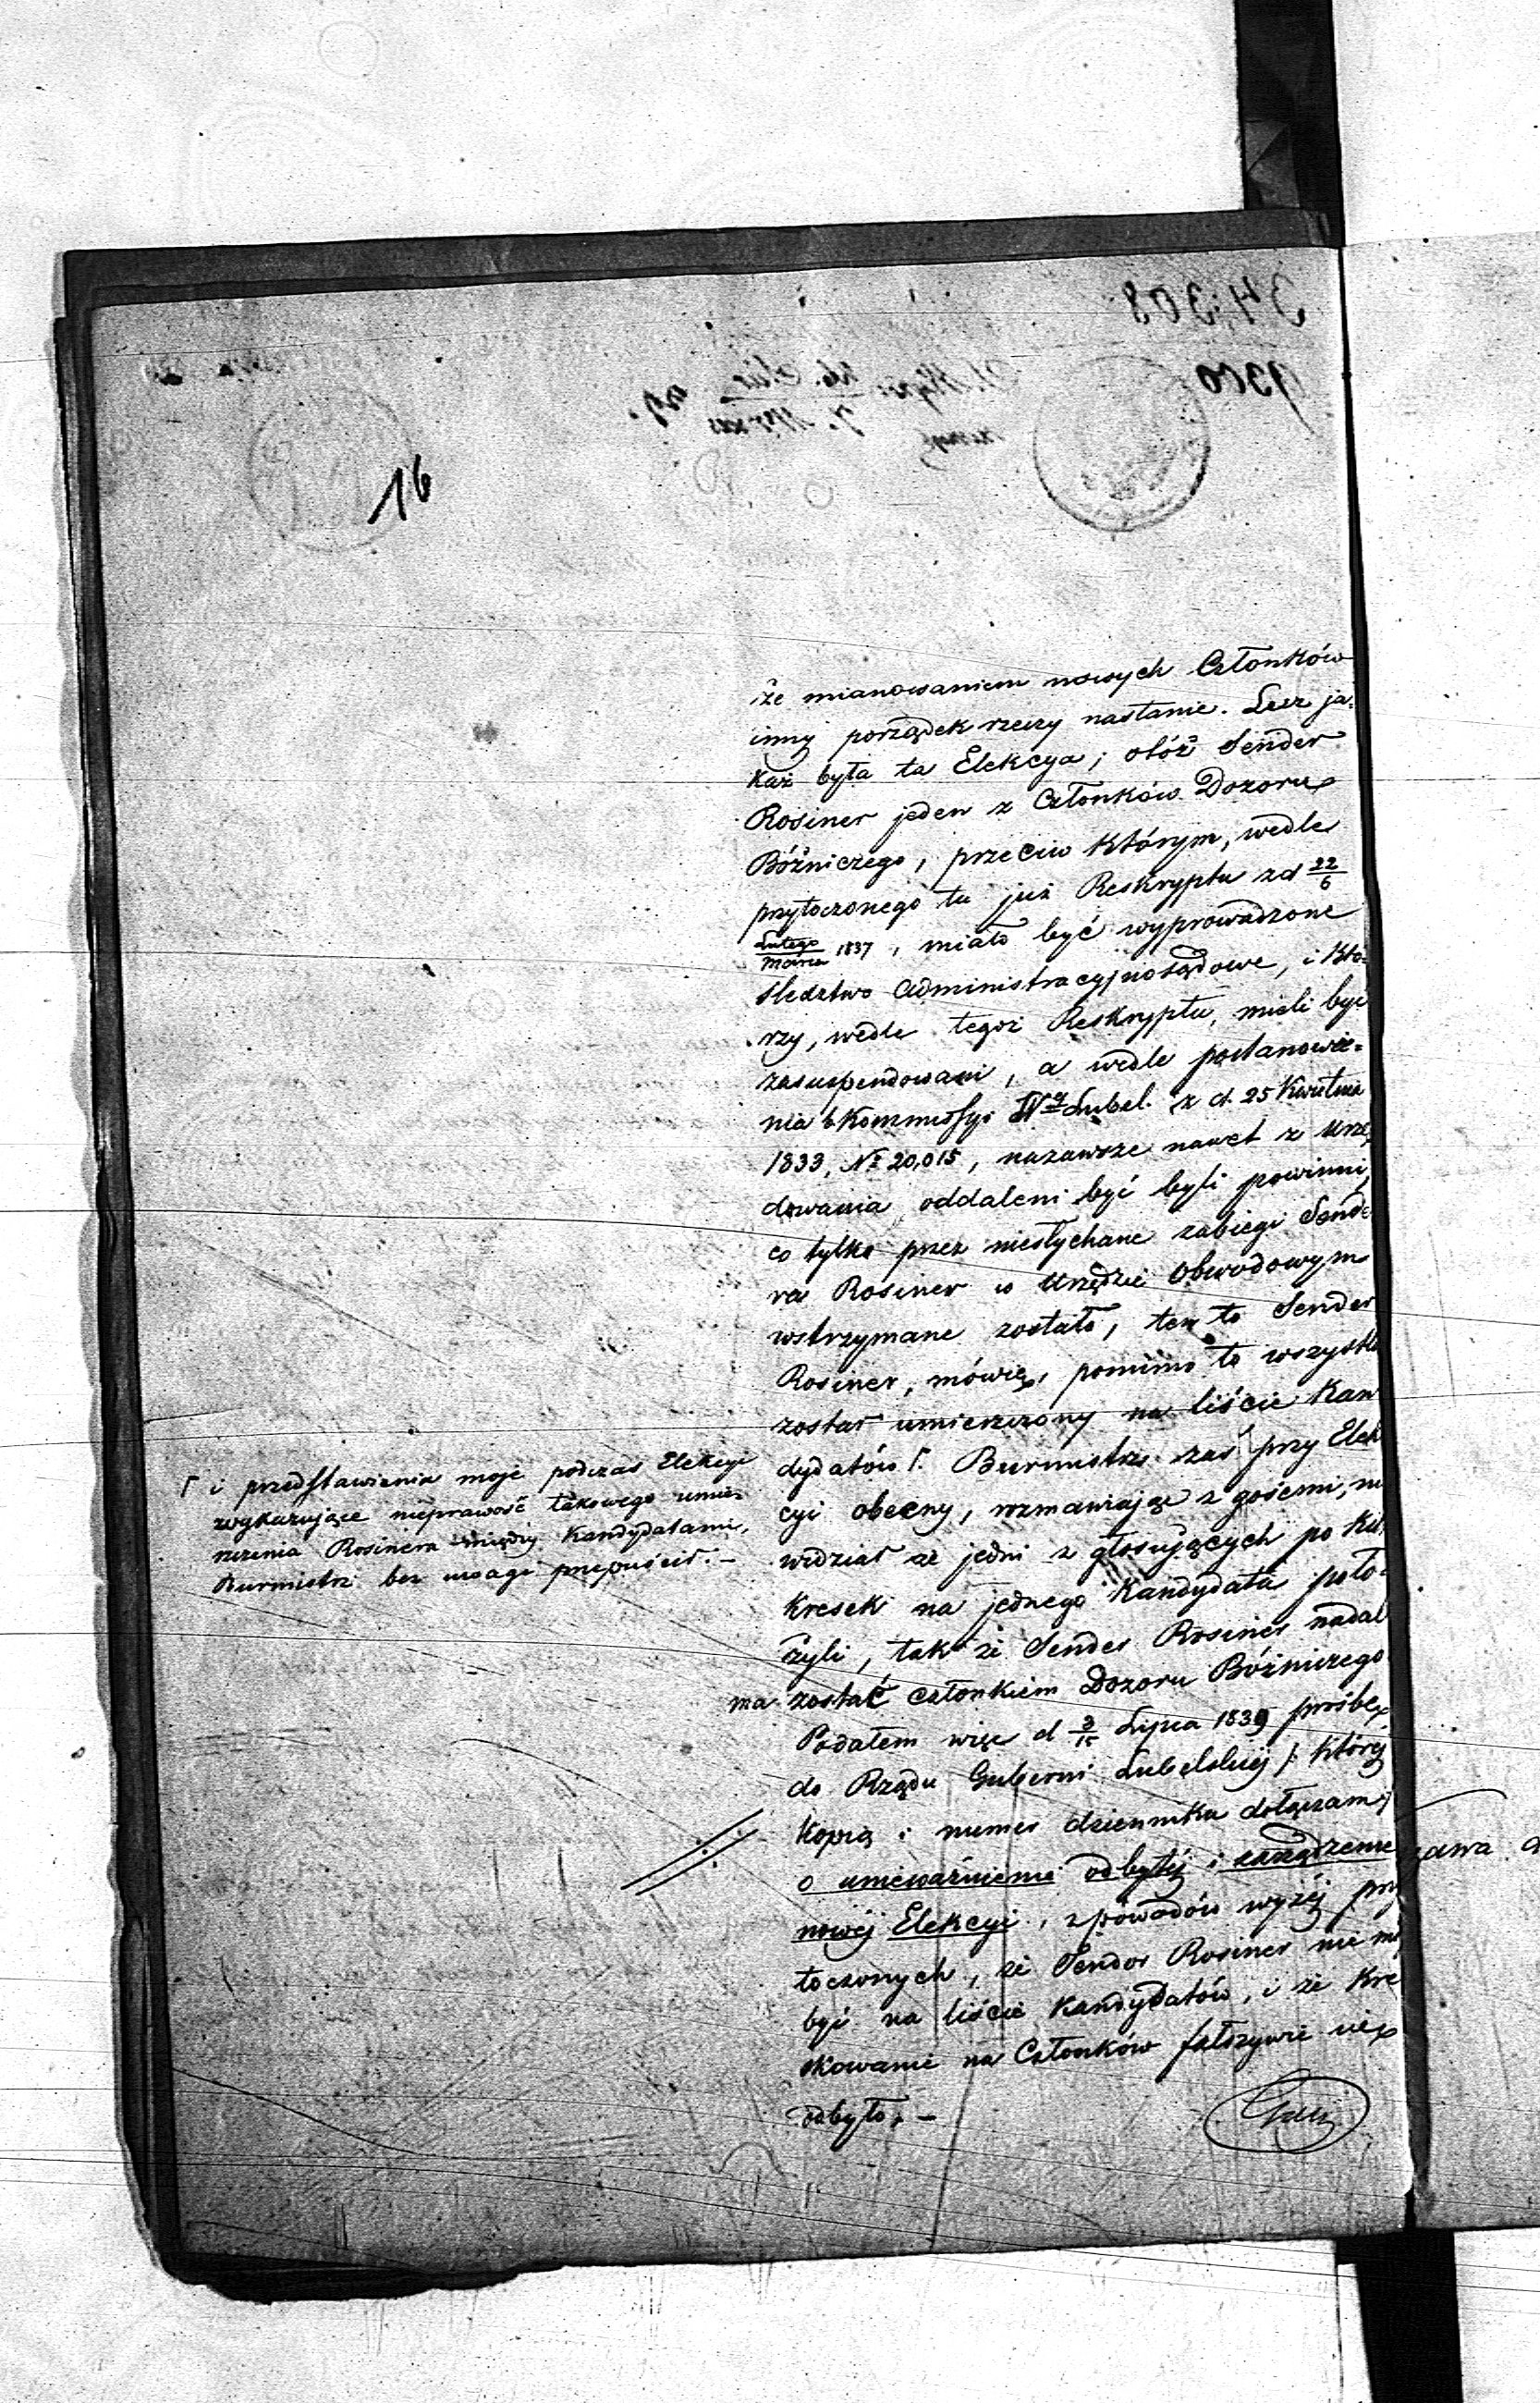 16
że mianowaniem nowych Członków
inny porządek rzeczy nastanie. Lecz ja=
każ była ta Elekcya; otóż Sender
Rosiner jeden z Członków Dozoru
Bóżniczego, przeciw którym, wedle
przytoczonego tu już Reskryptu z d 22/6
Lutego/Marca 1837, miało być wyprowadzone
śledztwo administracyjnosądowe, i któ=
rzy, wedle tegoż Reskryptu, mieli być
zasuspendowani, a wedle postanowie=
nia Kommissyi Wy Lubel. z d. 25 Kwietnia
1833, No 20,015, nazawsze nawet z Urzę
dowania oddaleni być byli powinni,
co tylko przez niesłychane zabiegi Sende
ra Rosiner w Urzędzie Obwodowym
wstrzymane zostało, ten to Sender
Rosiner, mówię, pomimo to wszystko
został umieszczony na liście Kan
dydatów Γ. Burmistrz zaś przy Elek
cyi obecny, rozmawiając z gośćmi, nie
widział że jedni z głosujących po kil
kresek na jednego Kandydata poło=
żyli, tak że Sender Rosiner nadal
ma zostać członkiem Dozoru Bóżniczego
Podałem więc d 3/15 Lipca 1839 prośbę
do Rządu Guberni Lubelskiej /: której
kopią i numer dziennika dołączam :/
o unieważnienie odbytéj i zarządzenie
nowéj Elekcyi, z powodów wyżéj przy
toczonych, że Sender Rosiner nie mógł
być na liście Kandydatów, i że Kre
skowanie na Członków fałszywie się
odbyło. –
Γ i przedstawienia moje podczas Elekcyi
wykazujące nieprawość takowego umie=
szczenia Rosinera między Kandydatami,
Burmistrz bez uwagi przepuścił. –
34,303